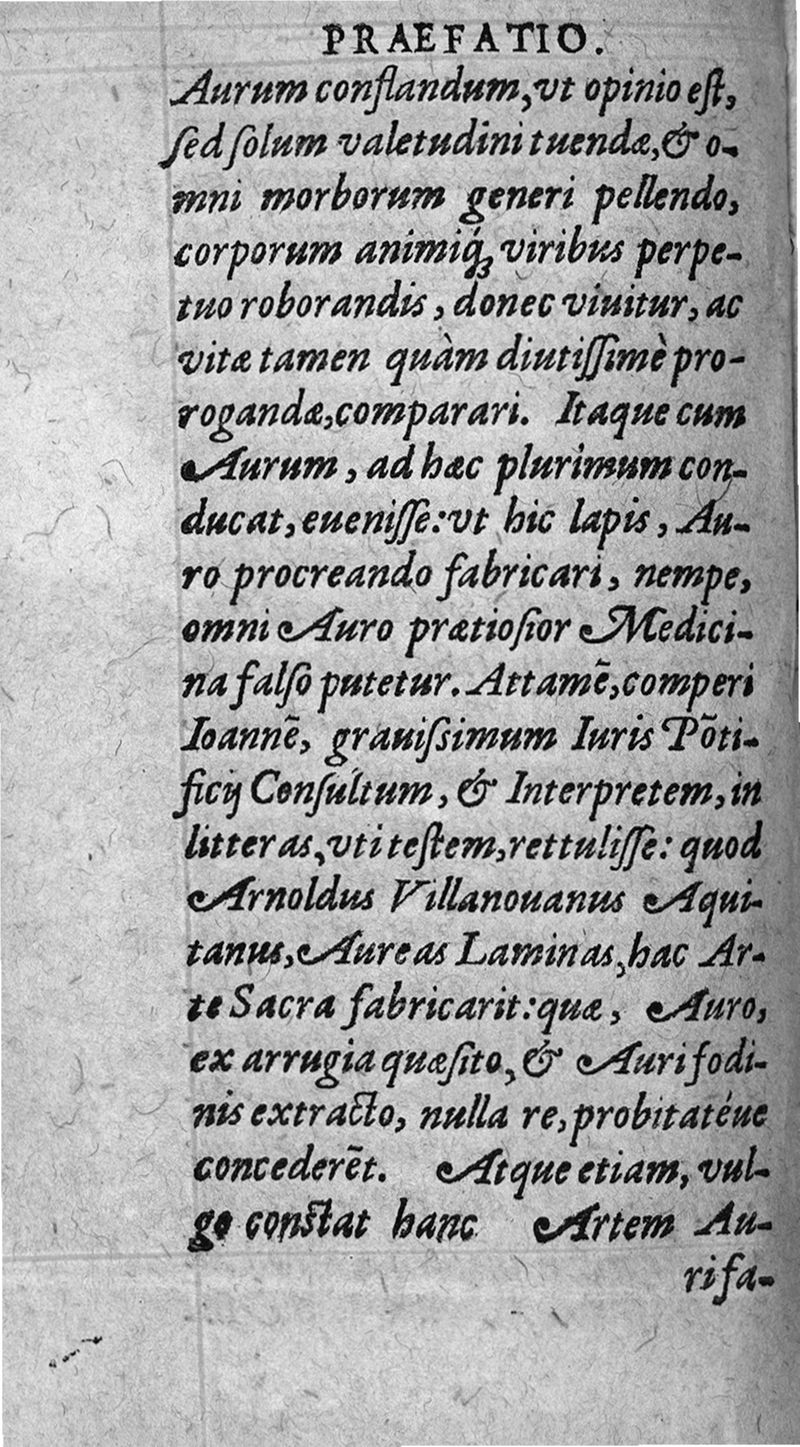 PRAEFATIO.
Aurum conflandum, vt opinio eſt,
ſed ſolum valetudini tuendæ, & o-
mni morborum generi pellendo,
corporum animiq́ꝫ viribus perpe-
tuo roborandis, donec viuitur, ac
vitæ tamen quàm diutiſſimè pro-
rogandæ, comparari. Itaque cum
Aurum, ad hæc plurimum con-
ducat, eueniſſe: vt hic lapis, Au-
ro procreando fabricari, nempe,
omni Auro prætioſior Medici-
na falſò putetur. Attamē, comperi
Ioannē, grauiſsimum Iuris Põti-
ficij Conſultum, & Interpretem, in
litteras, vti teſtem, rettuliſſe: quod
Arnoldus Villanouanus Aqui-
tanus, Aureas Laminas, hac Ar-
te Sacra fabricarit: quæ, Auro,
ex arrugia quæſito, & Aurifodi-
nis extracto, nulla re, probitatéue
concederẽt. Atque etiam, vul-
go conſtat hanc Artem Au-
rifa-